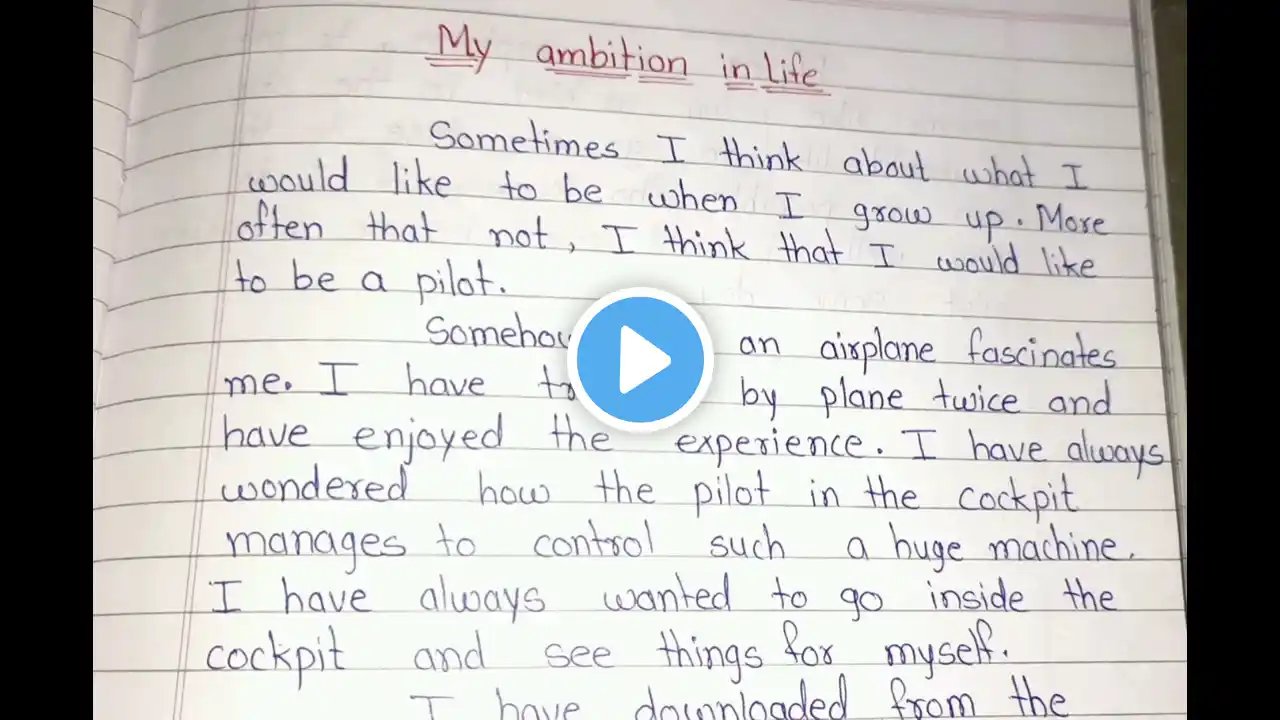 My ambition in life
Sometimes I think about what I
would like to be when I grow up. More
often that not, I think that I would like
to be a pilot.
an airplane fascinates
me. I have by plane twice and
have enjoyed the experience. I have always
wondered how the pilot in the cockpit
manages to control such a huge machine.
I have always wanted to go inside the
cockpit and see things for myself.
I have downloaded from the